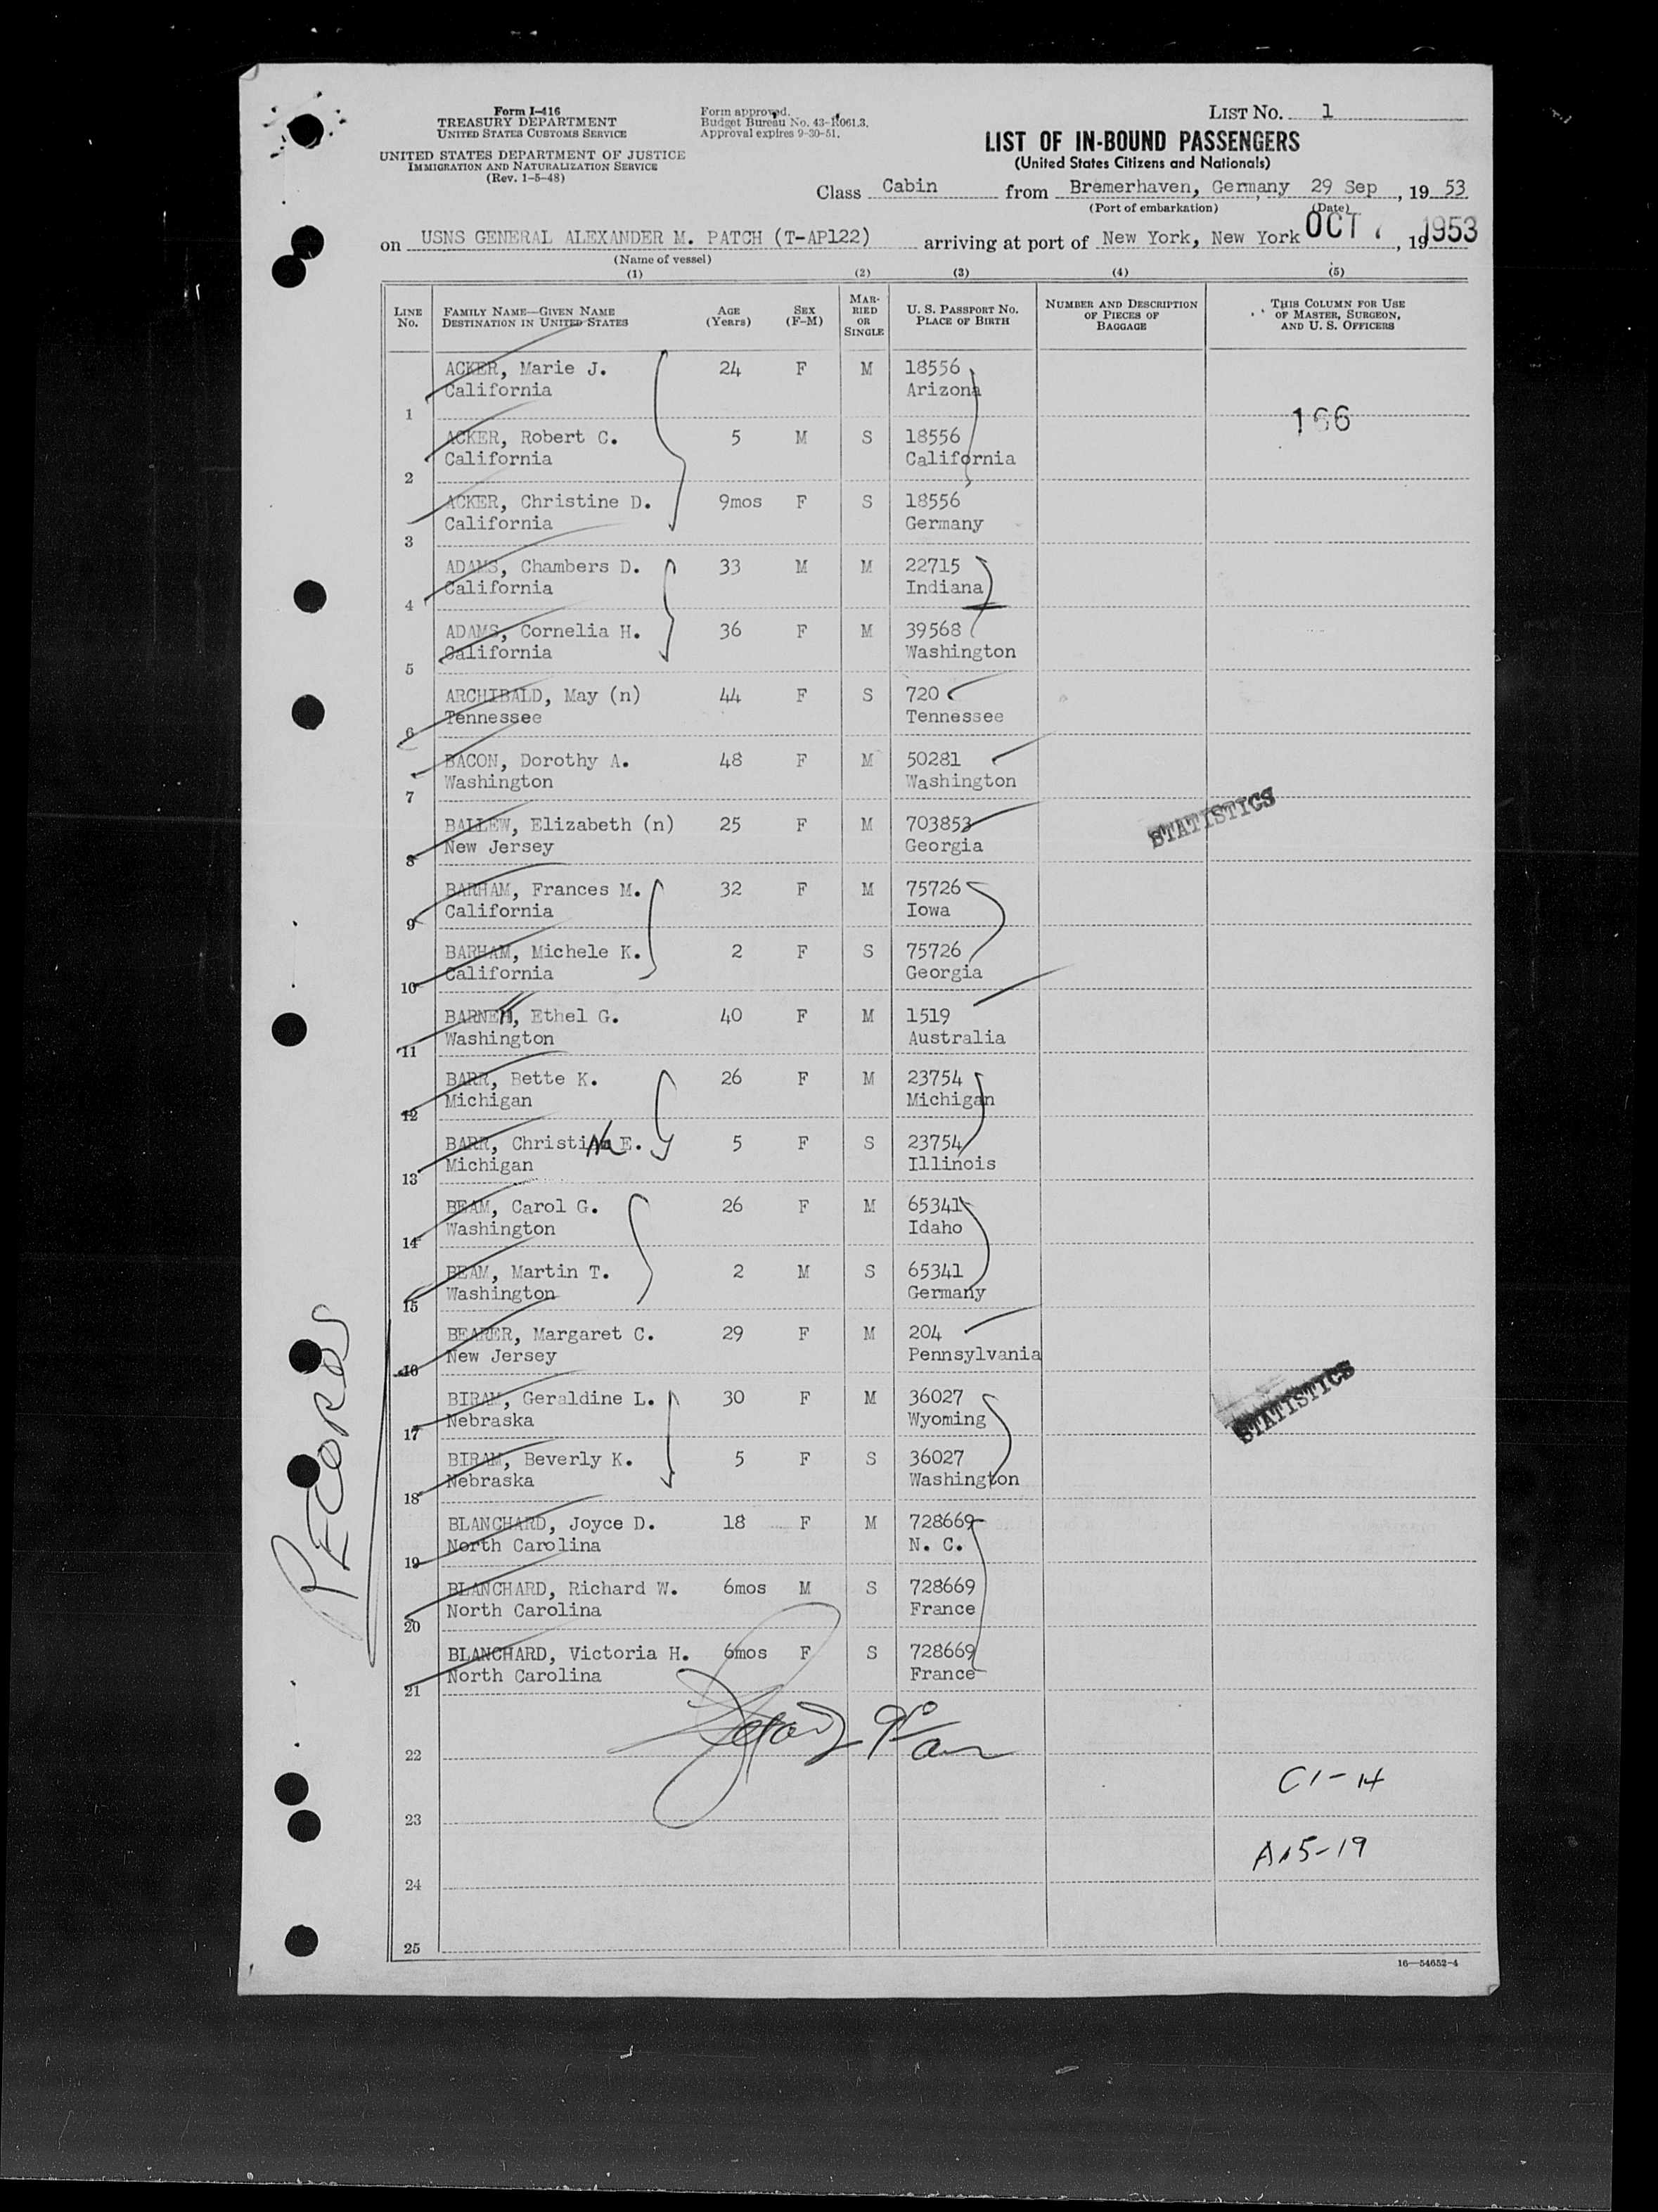 Form I-416
TREASURY DEPARTMENT
UNITED STATES CUSTOMS SERVICE
UNITED STATES DEPARTMENT OF JUSTICE
IMMIGRATION AND NATURALIZATION SERVICE
(Rev. 1-5-48)
Form approved.
Budget Bureau No. 43-R061.3.
Approval expires 9-30-51.
LIST No. 1
LIST OF IN-BOUND PASSENGERS
(United States Citizens and Nationals)
Class Cabin from Bremerhaven, Germany, 29 Sep, 19 53
(Port of embarkation) (Date)
on USNS GENERAL ALEXANDER M. PATCH (T-AP122) arriving at port of New York, New York OCT 7, 19 1953
(Name of vessel)
(1) (2) (3) (4) (5)
LINE No. FAMILY NAME—GIVEN NAME DESTINATION IN UNITED STATES AGE (Years) SEX (F-M) MARRIED OR SINGLE U. S. PASSPORT No. PLACE OF BIRTH NUMBER AND DESCRIPTION OF PIECES OF BAGGAGE THIS COLUMN FOR USE OF MASTER, SURGEON, AND U. S. OFFICERS
ACKER, Marie J. 24 F M 18556
California Arizona
1 166
ACKER, Robert C. 5 M S 18556
California California
2
ACKER, Christine D. 9mos F S 18556
California Germany
3
ADAMS, Chambers D. 33 M M 22715
California Indiana
4
ADAMS, Cornelia H. 36 F M 39568
California Washington
5
ARCHIBALD, May (n) 44 F S 720
Tennessee Tennessee
6
BACON, Dorothy A. 48 F M 50281
Washington Washington
7
STATISTICS
BALLEW, Elizabeth (n) 25 F M 703853
New Jersey Georgia
8
BARHAM, Frances M. 32 F M 75726
California Iowa
9
BARHAM, Michele K. 2 F S 75726
California Georgia
10
Ethel G. 40 F M 1519
Washington Australia
11
BARR, Bette K. 26 F M 23754
Michigan Michigan
12
BARR, Christina E. 5 F S 23754
Michigan Illinois
13
BEAM, Carol G. 26 F M 65341
Washington Idaho
14
BEAM, Martin T. 2 M S 65341
Washington Germany
15
BEARER, Margaret C. 29 F M 204
New Jersey Pennsylvania
16
STATISTICS
BIRAM, Geraldine L. 30 F M 36027
Nebraska Wyoming
17
BIRAM, Beverly K. 5 F S 36027
Nebraska Washington
18
BLANCHARD, Joyce D. 18 F M 728669
North Carolina N. C.
19
BLANCHARD, Richard W. 6mos M S 728669
North Carolina France
20
BLANCHARD, Victoria H. 6mos F S 728669
North Carolina France
21
22
C1-14
23
A15-19
24
25
16—54652-4
RECORDS